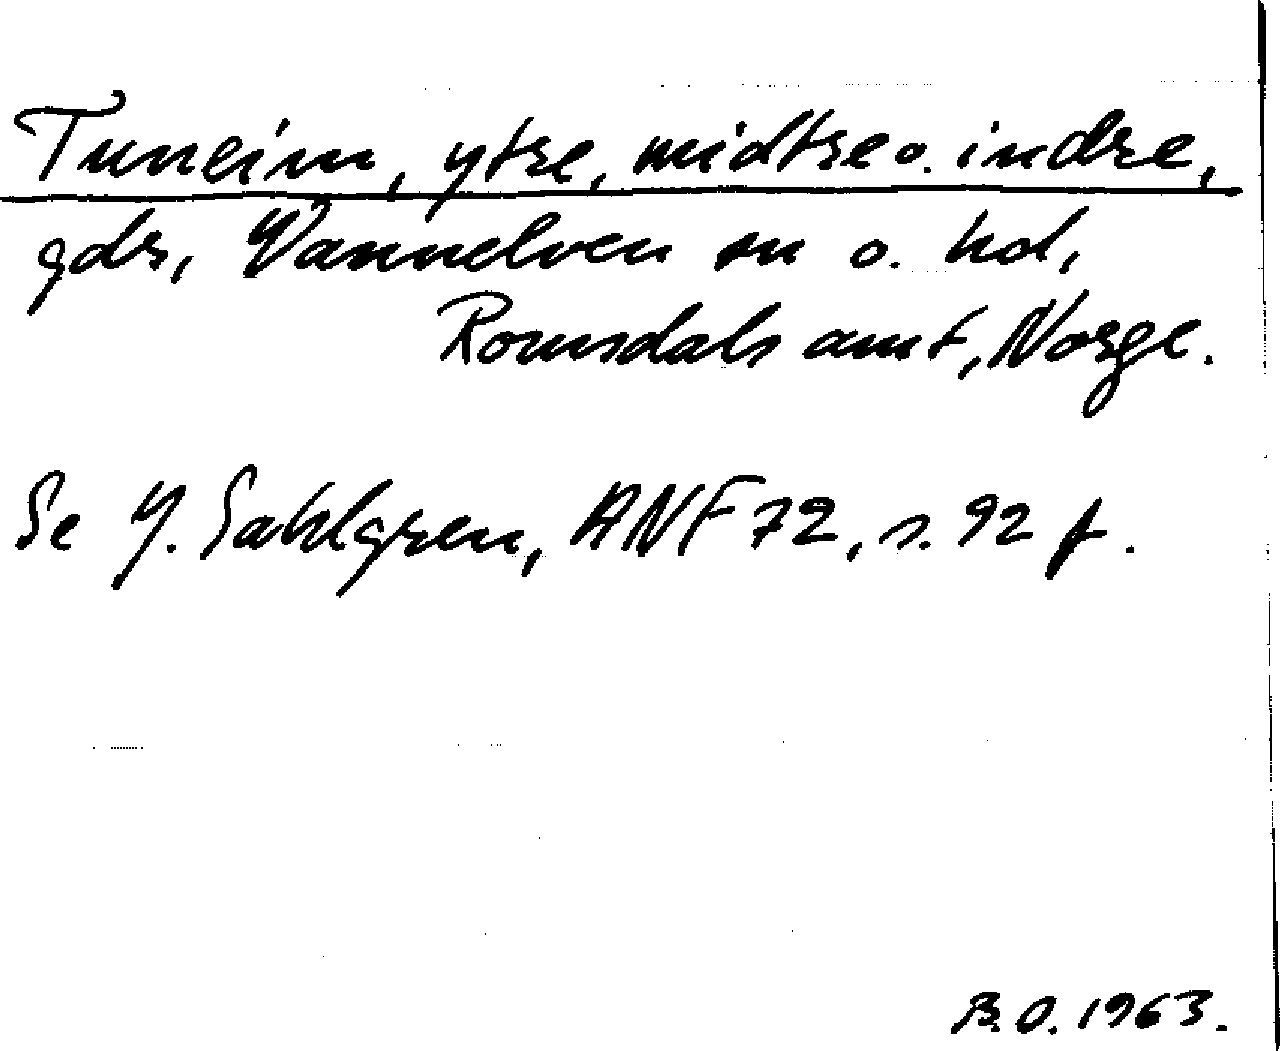 Tuneim, ytre, midtre o. indre,
gdr, Vannelven sn o. hd,
Romsdals amt, Norge.
Se J. Sahlgren, ANF 72, s. 92 f.
B.O. 1963.